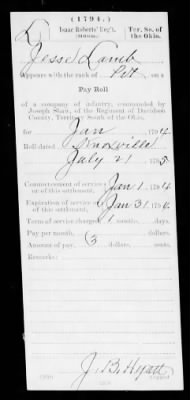 (1794.)
L
Isaac Roberts' Reg't.
Ter. So. of the Ohio.
Jesse Lamb
Appears with the rank of Pvt on a
Pay Roll
of a company of infantry, commanded by
Joseph Shaw, of the Regiment of Davidson
County, Territory South of the Ohio,
for Jan 1794.
Roll dated Knoxville
July 21 1795
Commencement of service or of this settlement, Jan 1 1794
Expiration of service or of this settlement, Jan 31 1794
Term of service charged, 1 month, days.
Pay per month, dollars.
Amount of pay, 3 dollars, cents.
Remarks:
J. B. Hyatt